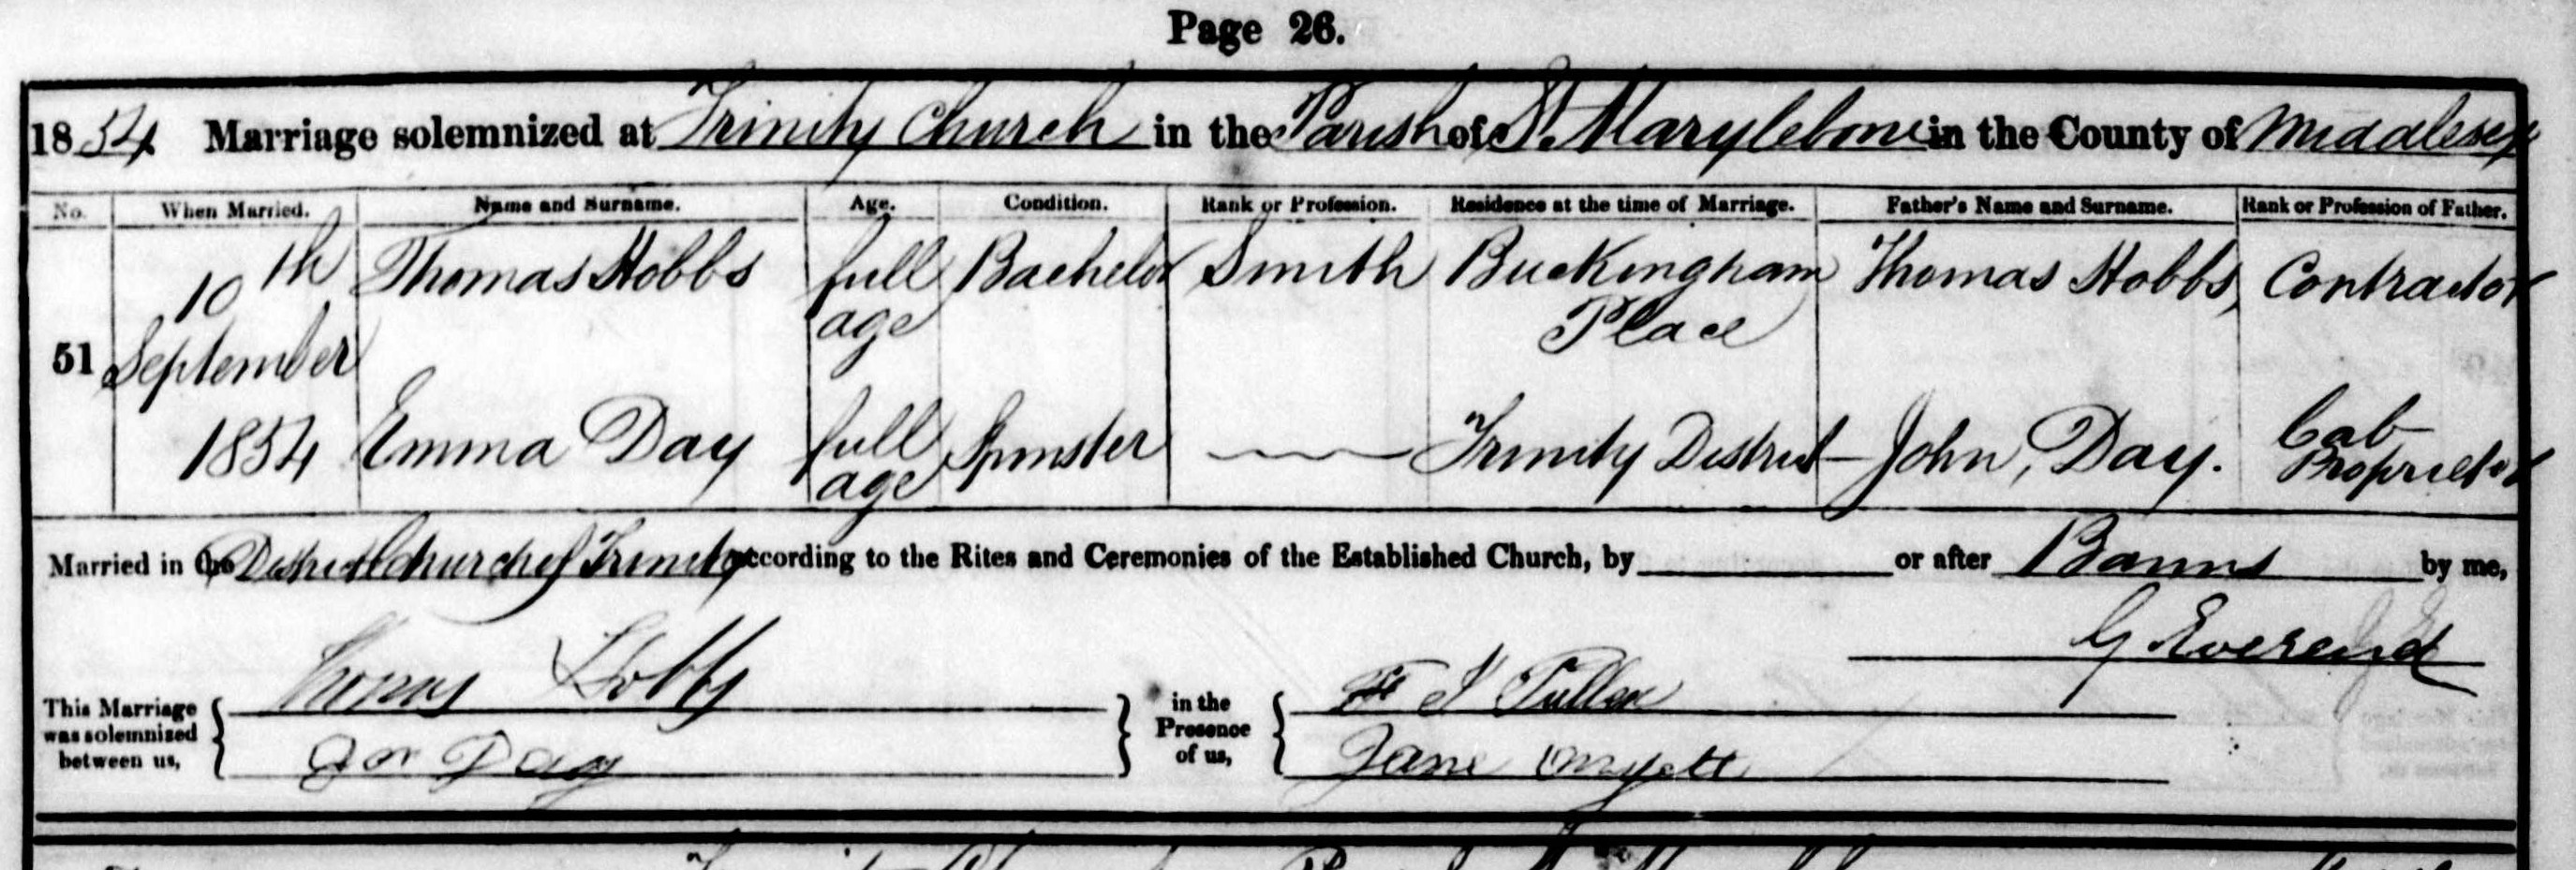 Page 26.
1854 Marriage solemnized at Trinity Church in the Parish of St. Marylebone in the County of Middlesex
No. When Married. Name and Surname. Age. Condition. Rank or Profession. Residence at the time of Marriage. Father's Name and Surname. Rank or Profession of Father.
51 10th September 1854 Thomas Hobbs full age Bachelor Smith Buckingham Place Thomas Hobbs, Contractor
Emma Day full age Spinster Trinity District John, Day. Cab Proprietor
Married in the District Church of Trinity according to the Rites and Ceremonies of the Established Church, by or after Banns by me,
G Everard
This Marriage was solemnized between us, { Thomas Hobbs
Day } in the Presence of us, { Pullen
Jane